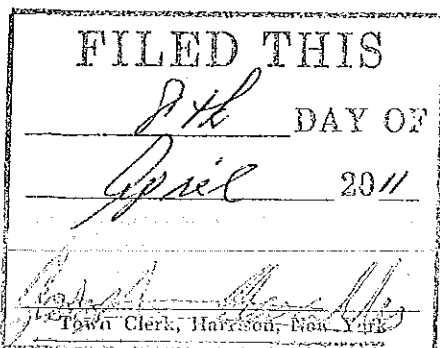 FILED THIS
8th DAY OF
April 2011
Town Clerk, Harrison, New York